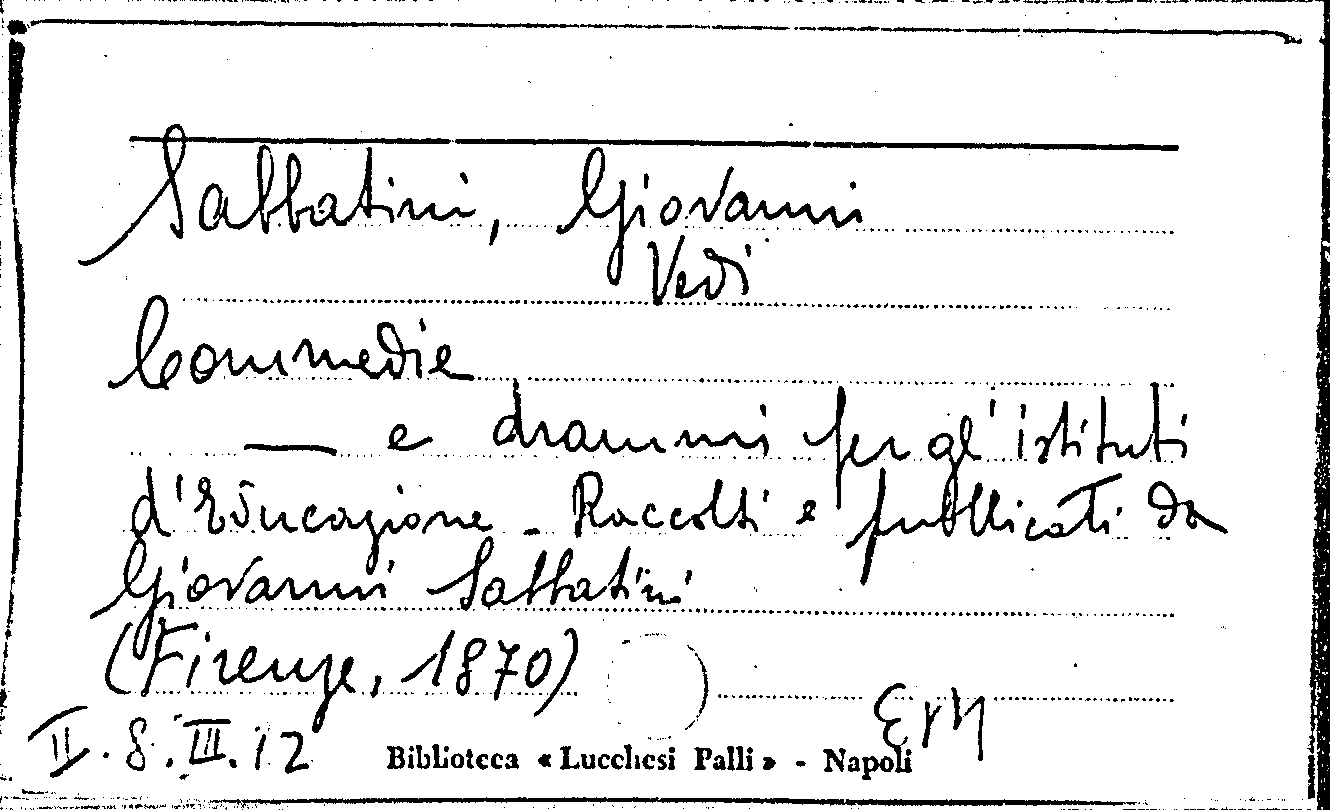 Sabbatini, Giovanni
Vedi
Commedie
— e drammi per gl'istituti
d'Educazione - Raccolti e pubblicati da
Giovanni Sabbatini
(Firenze, 1870)
II. 8. III. 12
Biblioteca « Lucchesi Palli » - Napoli